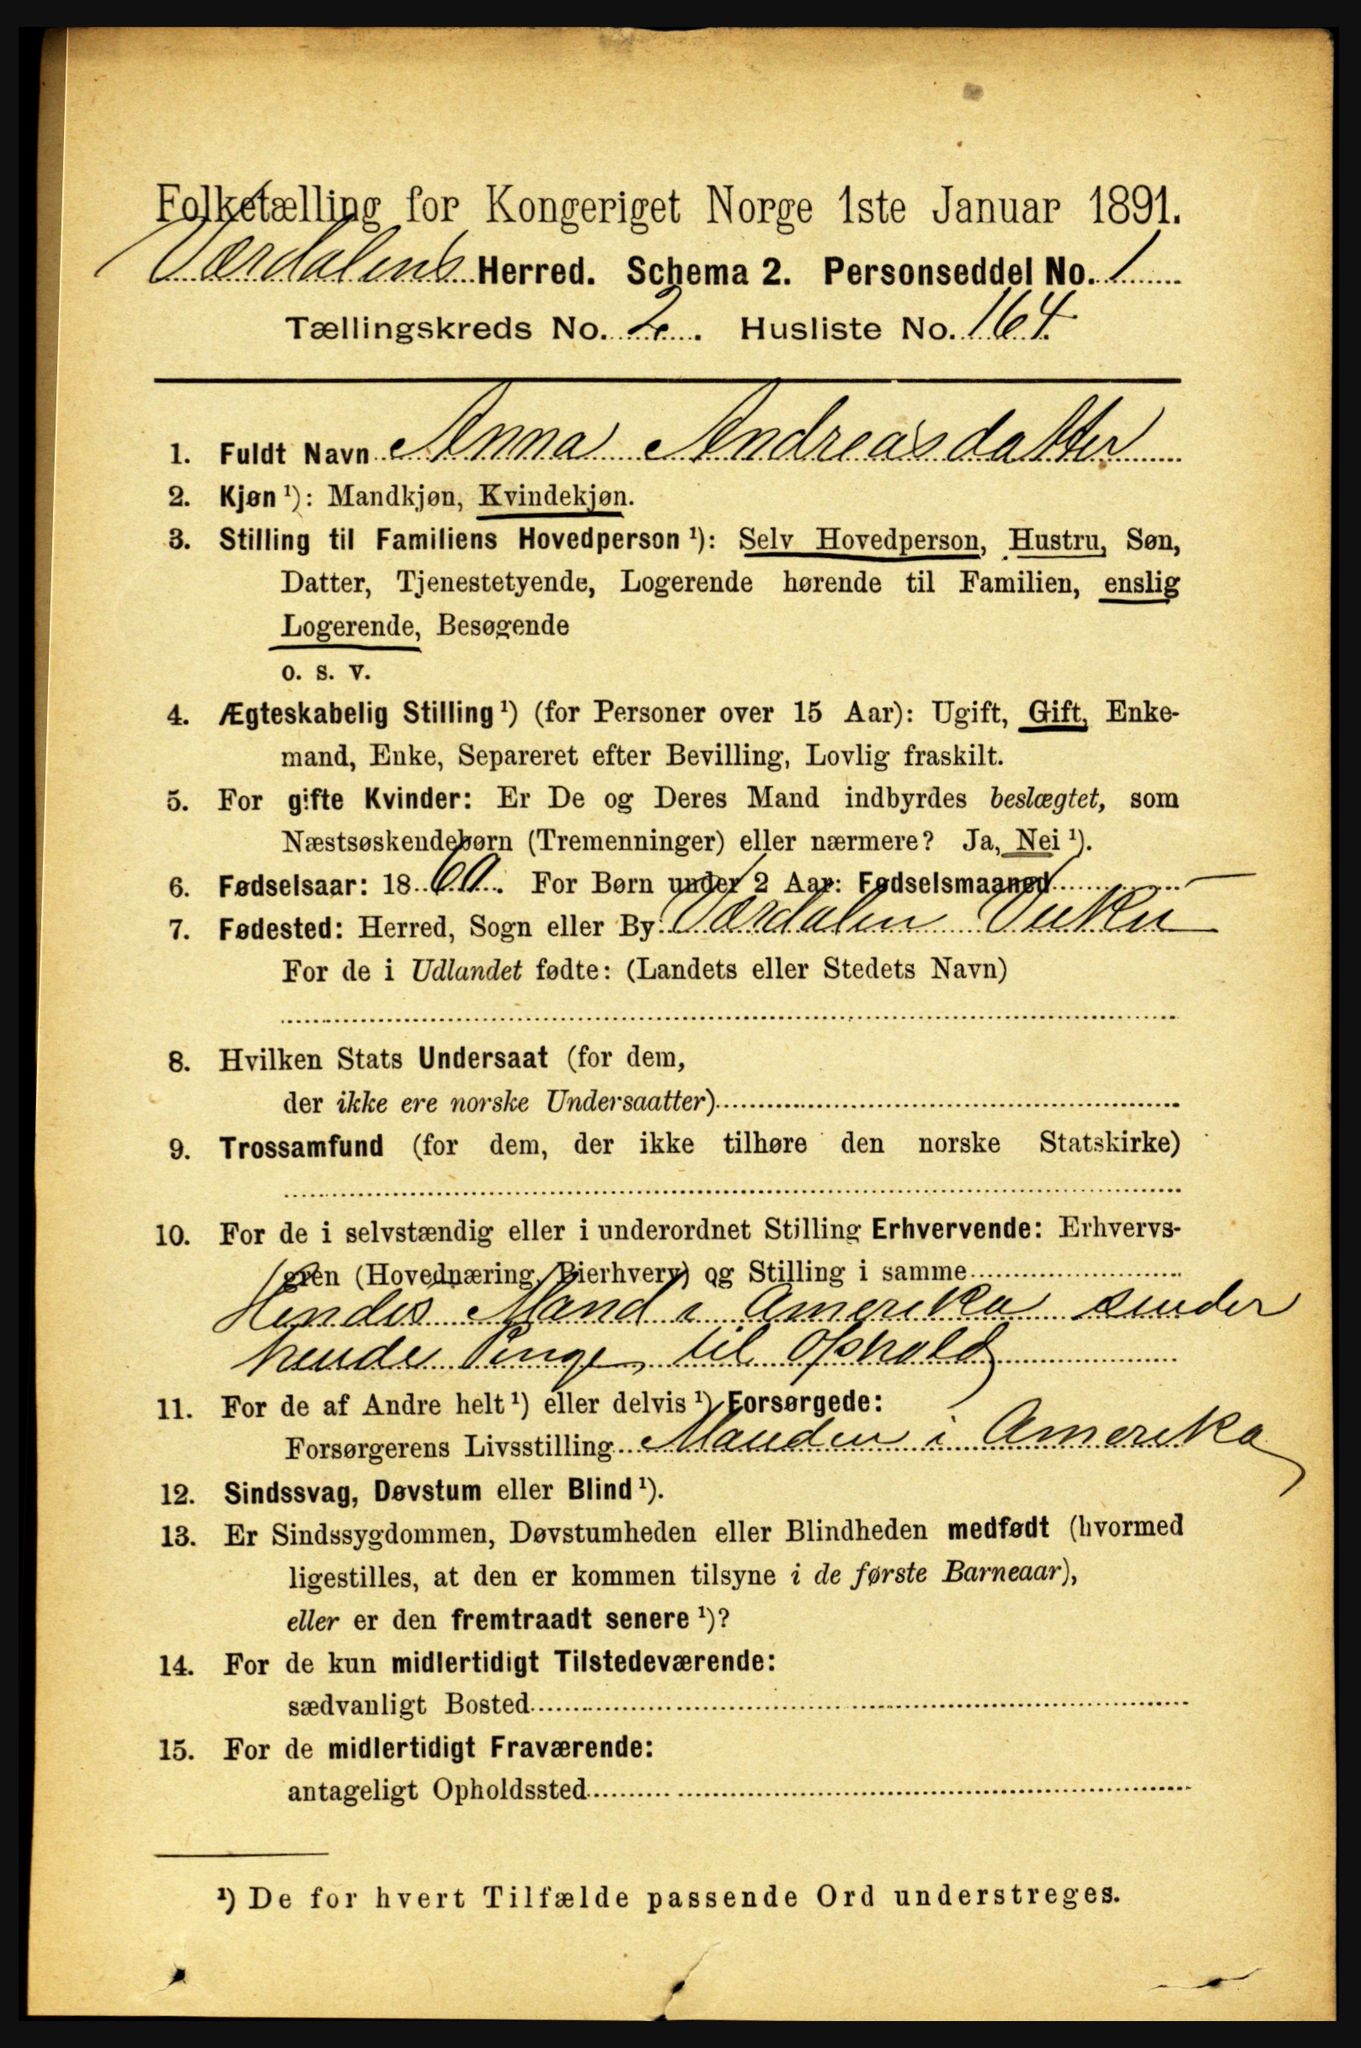 Folketælling for Kongeriget Norge 1ste Januar 1891.
Værdalens Herred. Schema 2. Personseddel No. 1
Tællingskreds No. 2. Husliste No. 164.
1. Fuldt Navn Anna Andreasdatter
2. Kjøn ¹): Mandkjøn, Kvindekjøn.
3. Stilling til Familiens Hovedperson ¹): Selv Hovedperson, Hustru, Søn,
Datter, Tjenestetyende, Logerende hørende til Familien, enslig
Logerende, Besøgende
o. s. v.
4. Ægteskabelig Stilling ¹) (for Personer over 15 Aar): Ugift, Gift, Enke-
mand, Enke, Separeret efter Bevilling, Lovlig fraskilt.
5. For gifte Kvinder: Er De og Deres Mand indbyrdes beslægtet, som
Næstsøskendebørn (Tremenninger) eller nærmere? Ja, Nei ¹).
6. Fødselsaar: 1860. For Børn under 2 Aar: Fødselsmaaned
7. Fødested: Herred, Sogn eller By Værdalen Vuku
For de i Udlandet fødte: (Landets eller Stedets Navn)
8. Hvilken Stats Undersaat (for dem,
der ikke ere norske Undersaatter)
9. Trossamfund (for dem, der ikke tilhøre den norske Statskirke)
10. For de i selvstændig eller i underordnet Stilling Erhvervende: Erhvervs-
gren (Hovednæring, Bierhverv) og Stilling i samme
Hendes Mand i Amerika sender
hende Penge til Ophold
11. For de af Andre helt ¹) eller delvis ¹) Forsørgede:
Forsørgerens Livsstilling Manden i Amerika
12. Sindssvag, Døvstum eller Blind ¹).
13. Er Sindssygdommen, Døvstumheden eller Blindheden medfødt (hvormed
ligestilles, at den er kommen tilsyne i de første Barneaar),
eller er den fremtraadt senere ¹)?
14. For de kun midlertidigt Tilstedeværende:
sædvanligt Bosted
15. For de midlertidigt Fraværende:
antageligt Opholdssted
¹) De for hvert Tilfælde passende Ord understreges.